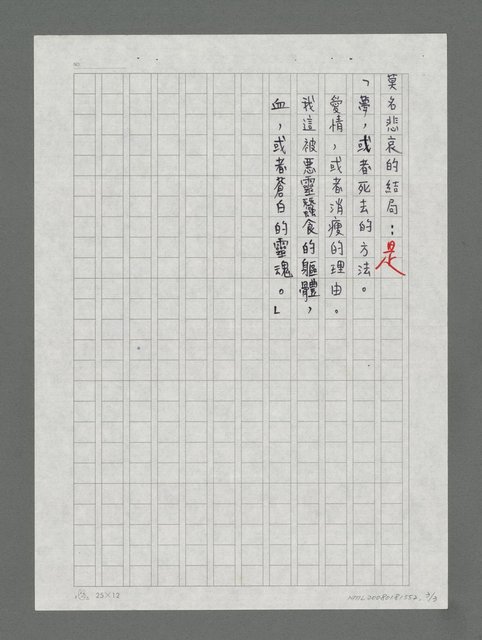 莫名悲哀的結局：是
「夢，或者死去的方法。
愛情，或者消瘦的理由。
我這被惡靈蠶食的軀體，
血，或者蒼白的靈魂。」
NO.
25×12
NMTL20080181552, 3/3